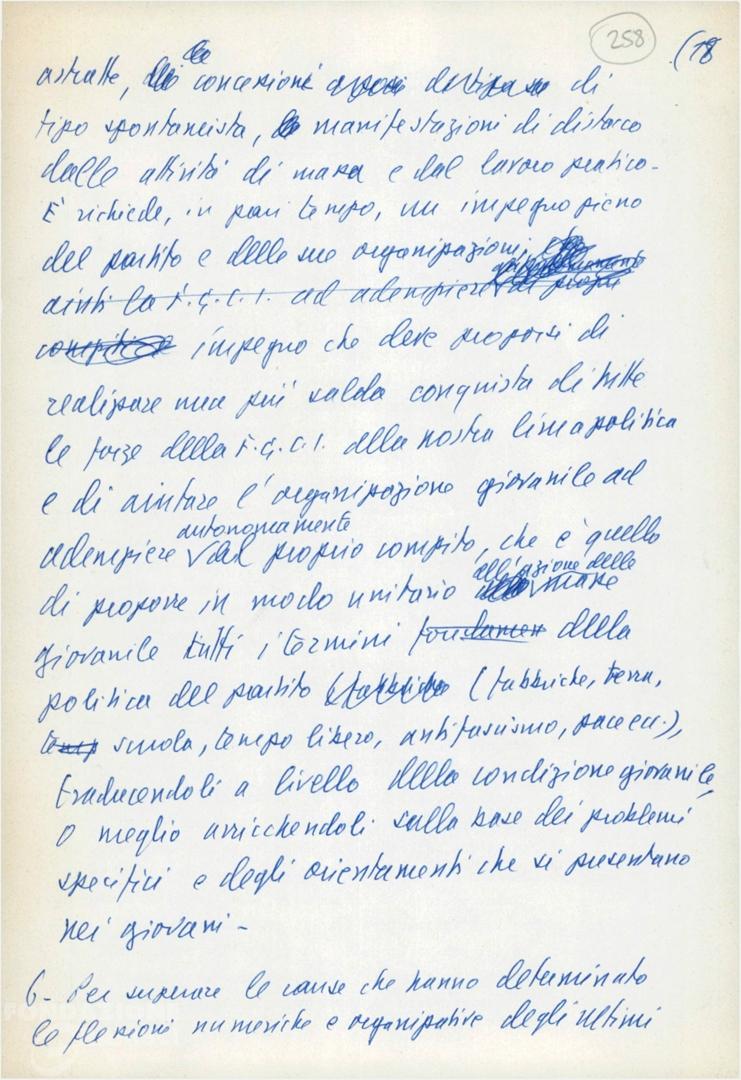 258
(18
astratte, le concezioni di
tipo spontaneista, le manifestazioni di distacco
dalle attività di massa e dal lavoro pratico-
E' richiede, in pari tempo, un impegno pieno
del partito e delle sue organizzazioni,
aiuti la F.G.C.I. ad adempiere ai propri
compiti impegno che deve proporsi di
realizzare una più salda conquista di tutte
le forze della F.G.C.I. alla nostra linea politica
e di aiutare l'organizzazione giovanile ad
adempiere autonomamente al proprio compito, che è quello
di proporre in modo unitario all'azione delle masse
giovanile tutti i termini fondamen della
politica del partito (fabbriche, terra,
temp scuola, tempo libero, antifascismo, pace ecc.),
traducendoli a livello della condizione giovanile,
o meglio arricchendoli sulla base dei problemi
specifici e degli orientamenti che si presentano
nei giovani-
6- Per superare le cause che hanno determinato
le flessioni numeriche e organizzative degli ultimi